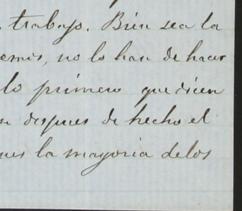 trabajo. Bien sea la
emis, no lo han de hacer
lo primero que dicen
n despues de hecho el
ues la mayoria de los